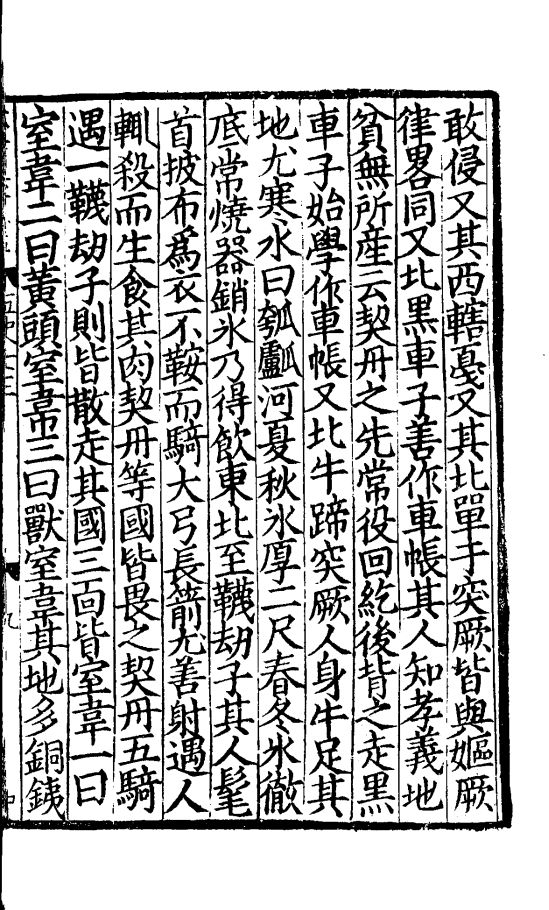 敢侵又其西轄戞又其北單于突厥皆與嫗厥
律畧同又北黑車子善作車帳其人知孝義地
貧無所産云契丹之先常役回紇後背之走黑
車子始學作車帳又北牛蹄突厥人身牛足其
地尤寒水曰瓠𤬛河夏秋氷厚二尺春冬氷徹
底常燒器銷氷乃得飲東北至韈劫子其人髦
首披布爲衣不鞍而騎大弓長箭尤善射遇人
輒殺而生食其肉契丹等國皆畏之契丹五騎
遇一韈劫子則皆散走其國三面皆室韋一曰
室韋二曰黃頭室韋三曰獸室韋其地多銅鐵